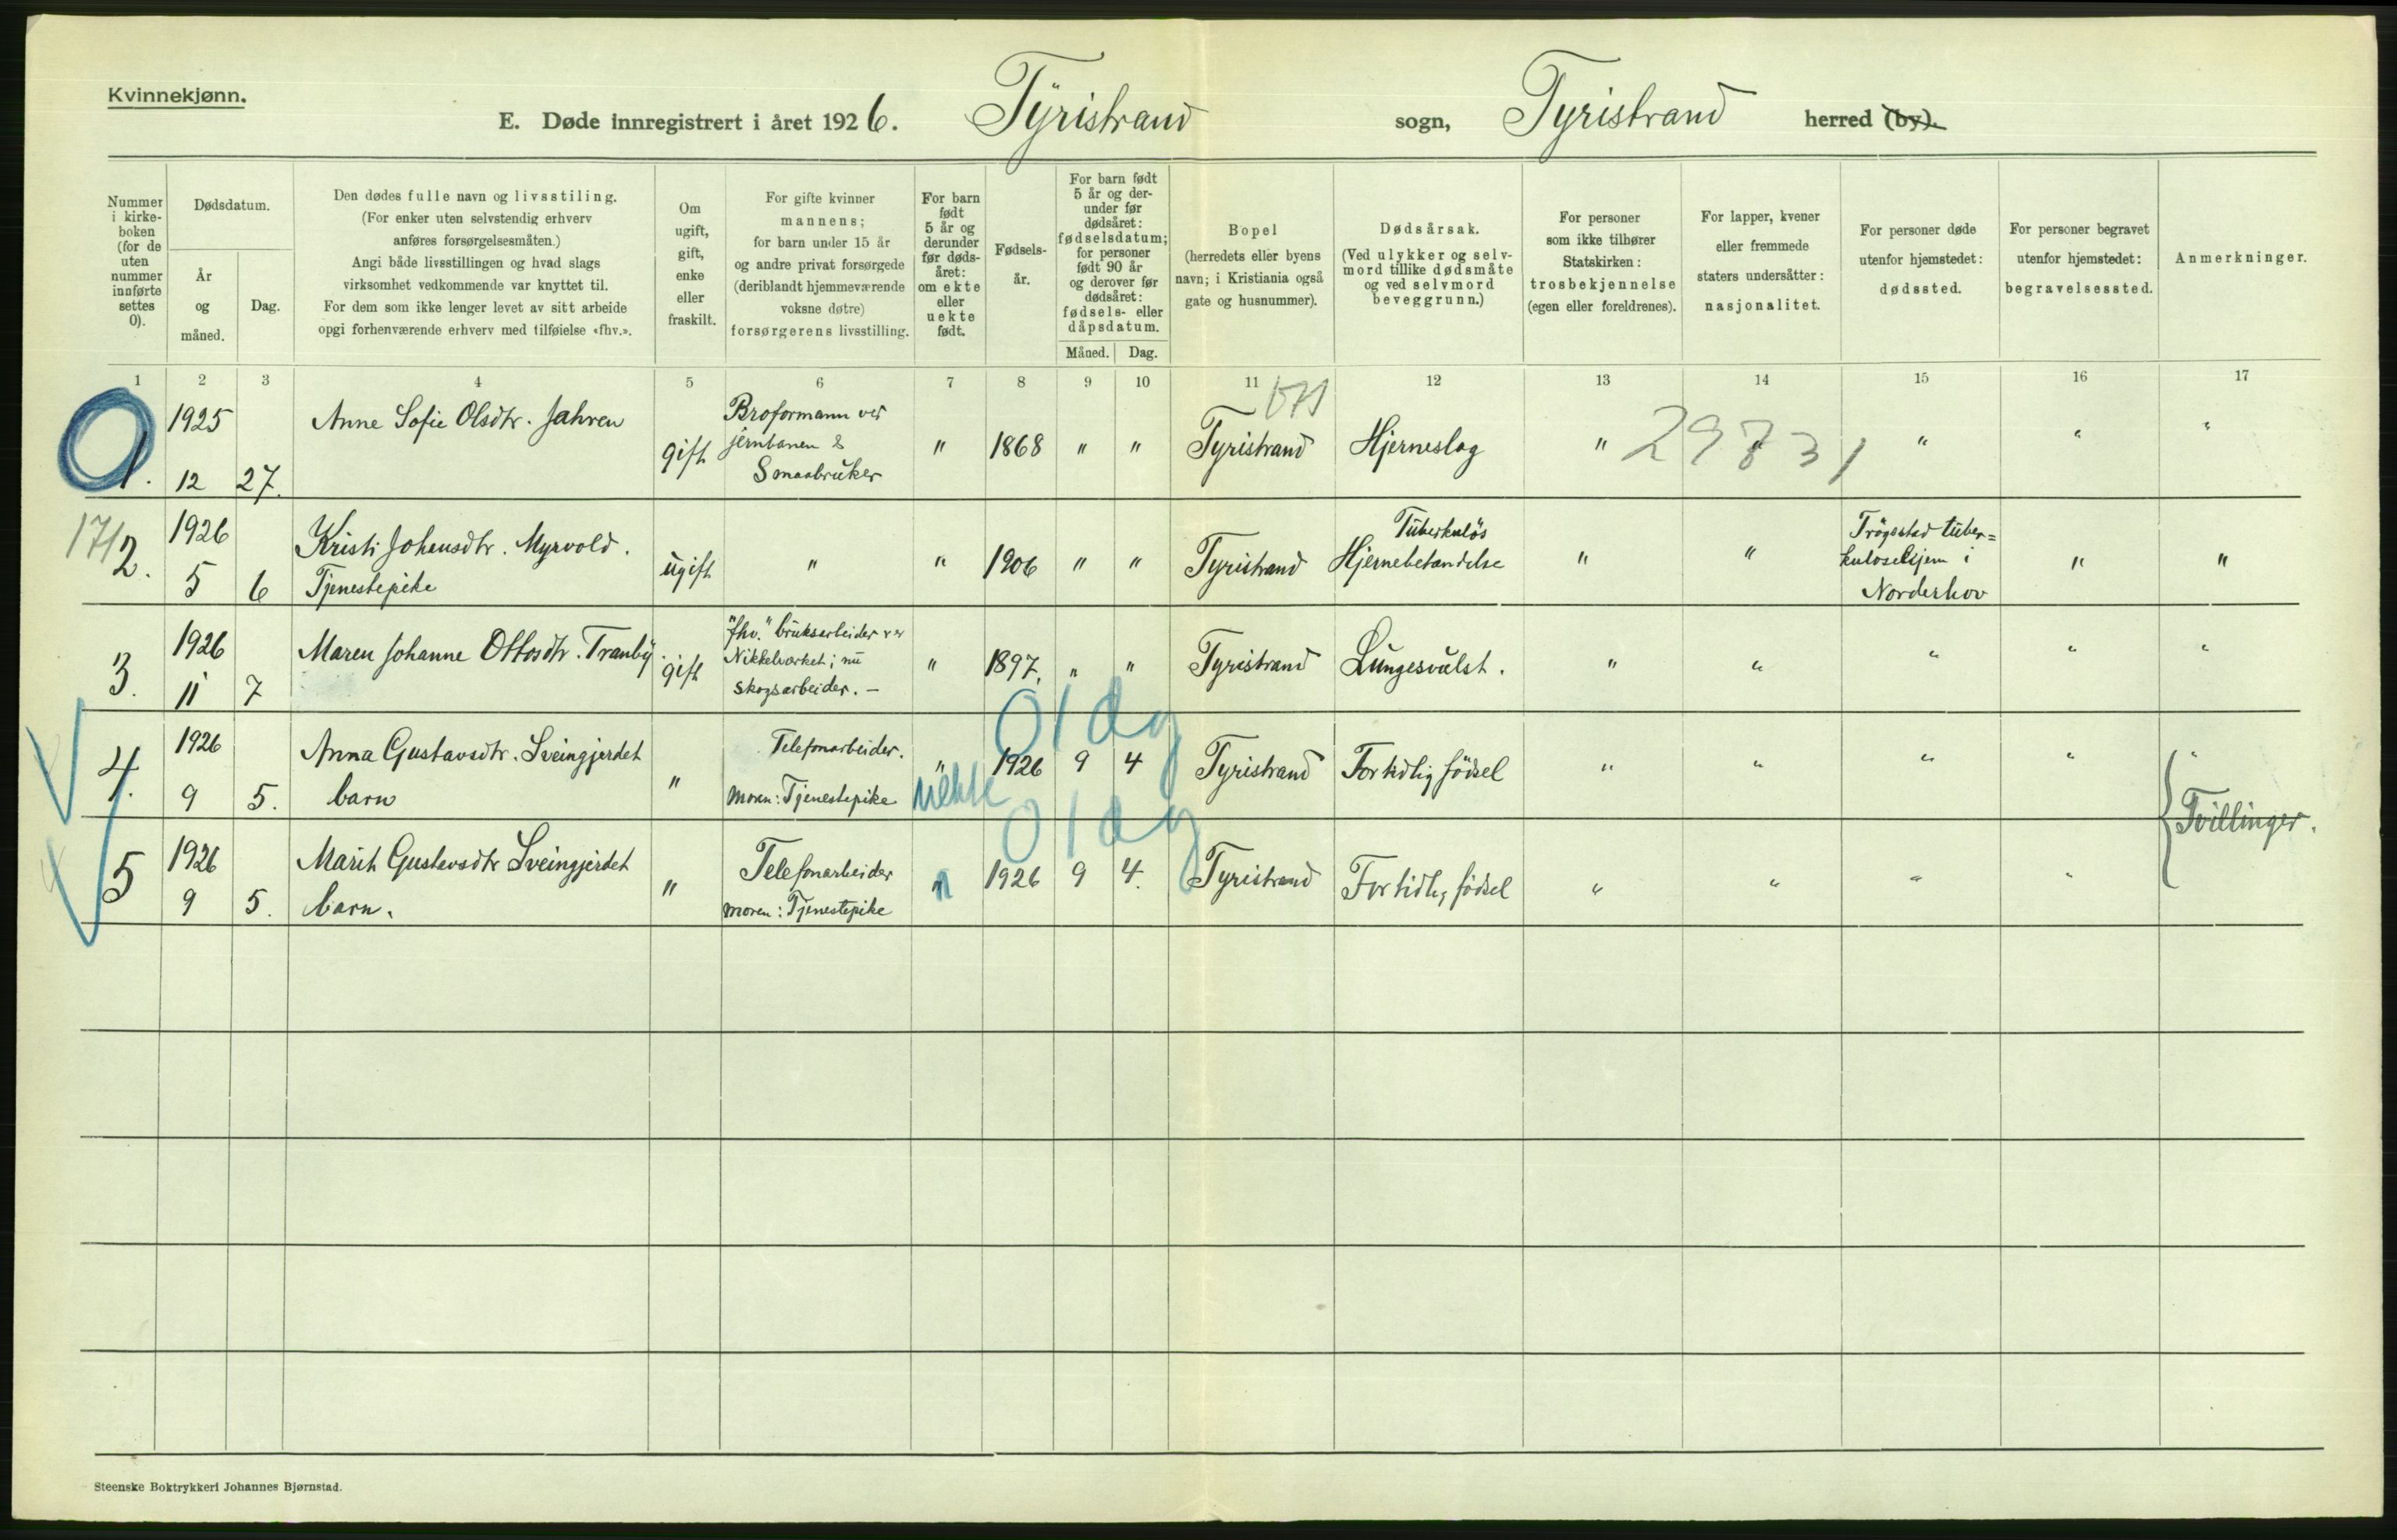 Kvinnekjønn.
E. Døde innregistrert i året 1926. Tyristrand sogn, Tyristrand herred (by).
Nummer
i kirke-
boken
(for de
uten
nummer
innførte
settes
0).
Dødsdatum.
År
og
måned.
Dag.
Den dødes fulle navn og livsstiling.
(For enker uten selvstendig erhverv
anføres forsørgelsesmåten.)
Angi både livsstillingen og hvad slags
virksomhet vedkommende var knyttet til.
For dem som ikke lenger levet av sitt arbeide
opgi forhenværende erhverv med tilføielse «fhv.».
Om
ugift,
gift,
enke
eller
fraskilt.
For gifte kvinner
mannens;
for barn under 15 år
og andre privat forsørgede
(deriblandt hjemmeværende
voksne døtre)
forsørgerens livsstilling.
For barn
født
5 år og
derunder
før døds-
året:
om ekte
eller
uekte
født.
Fødsels-
år.
For barn født
5 år og der-
under før
dødsåret:
fødselsdatum;
for personer
født 90 år
og derover før
dødsåret:
fødsels- eller
dåpsdatum.
Måned. Dag.
Bopel
(herredets eller byens
navn; i Kristiania også
gate og husnummer).
Dødsårsak.
(Ved ulykker og selv-
mord tillike dødsmåte
og ved selvmord
beveggrunn.)
For personer
som ikke tilhører
Statskirken:
trosbekjennelse
(egen eller foreldrenes).
For lapper, kvener
eller fremmede
staters undersåtter:
nasjonalitet.
For personer døde
utenfor hjemstedet:
dødssted.
For personer begravet
utenfor hjemstedet:
begravelsessted.
Anmerkninger.
1 2 3 4 5 6 7 8 9 10 11 12 13 14 15 16 17
0
1.
1925
12 27.
Anne Sofie Olsdtr. Jahren
gift
Broformann ved
jernbanen &
Smaabruker
" 1868 " "
Tyristrand
Hjerneslag
" " " " "
29831
17/
2.
1926
5 6
Kristi Johansdtr. Myrvold.
Tjenestepike
ugift
" " 1906 " "
Tyristrand
Tuberkuløs
Hjernebetændelse
" "
Trøgstad tuber=
kulosehjem i
Norderhov
" "
3.
1926
11 7
Maren Johanne Ottosdtr. Tranby.
gift
"fhv." bruksarbeider ved
Nikkelverket; nu
skogsarbeider. —
" 1897. " "
Tyristrand
Lungesvulst.
" " " " "
4.
1926
9 5.
Anna Gustavsdtr. Sveingjerdet
barn
"
Telefonarbeider.
moren: Tjenestepike
"
uekte
0 1 dg
1926 9 4
Tyristrand
For tidlig fødsel
" " " " "
5
1926
9 5.
Marit Gustavsdtr Sveingjerdet
barn.
"
Telefonarbeider
moren: Tjenestepike
"
0 1 dg
1926 9 4.
Tyristrand
For tidlig fødsel
" " " "
Tvillinger.
Steenske Boktrykkeri Johannes Bjørnstad.